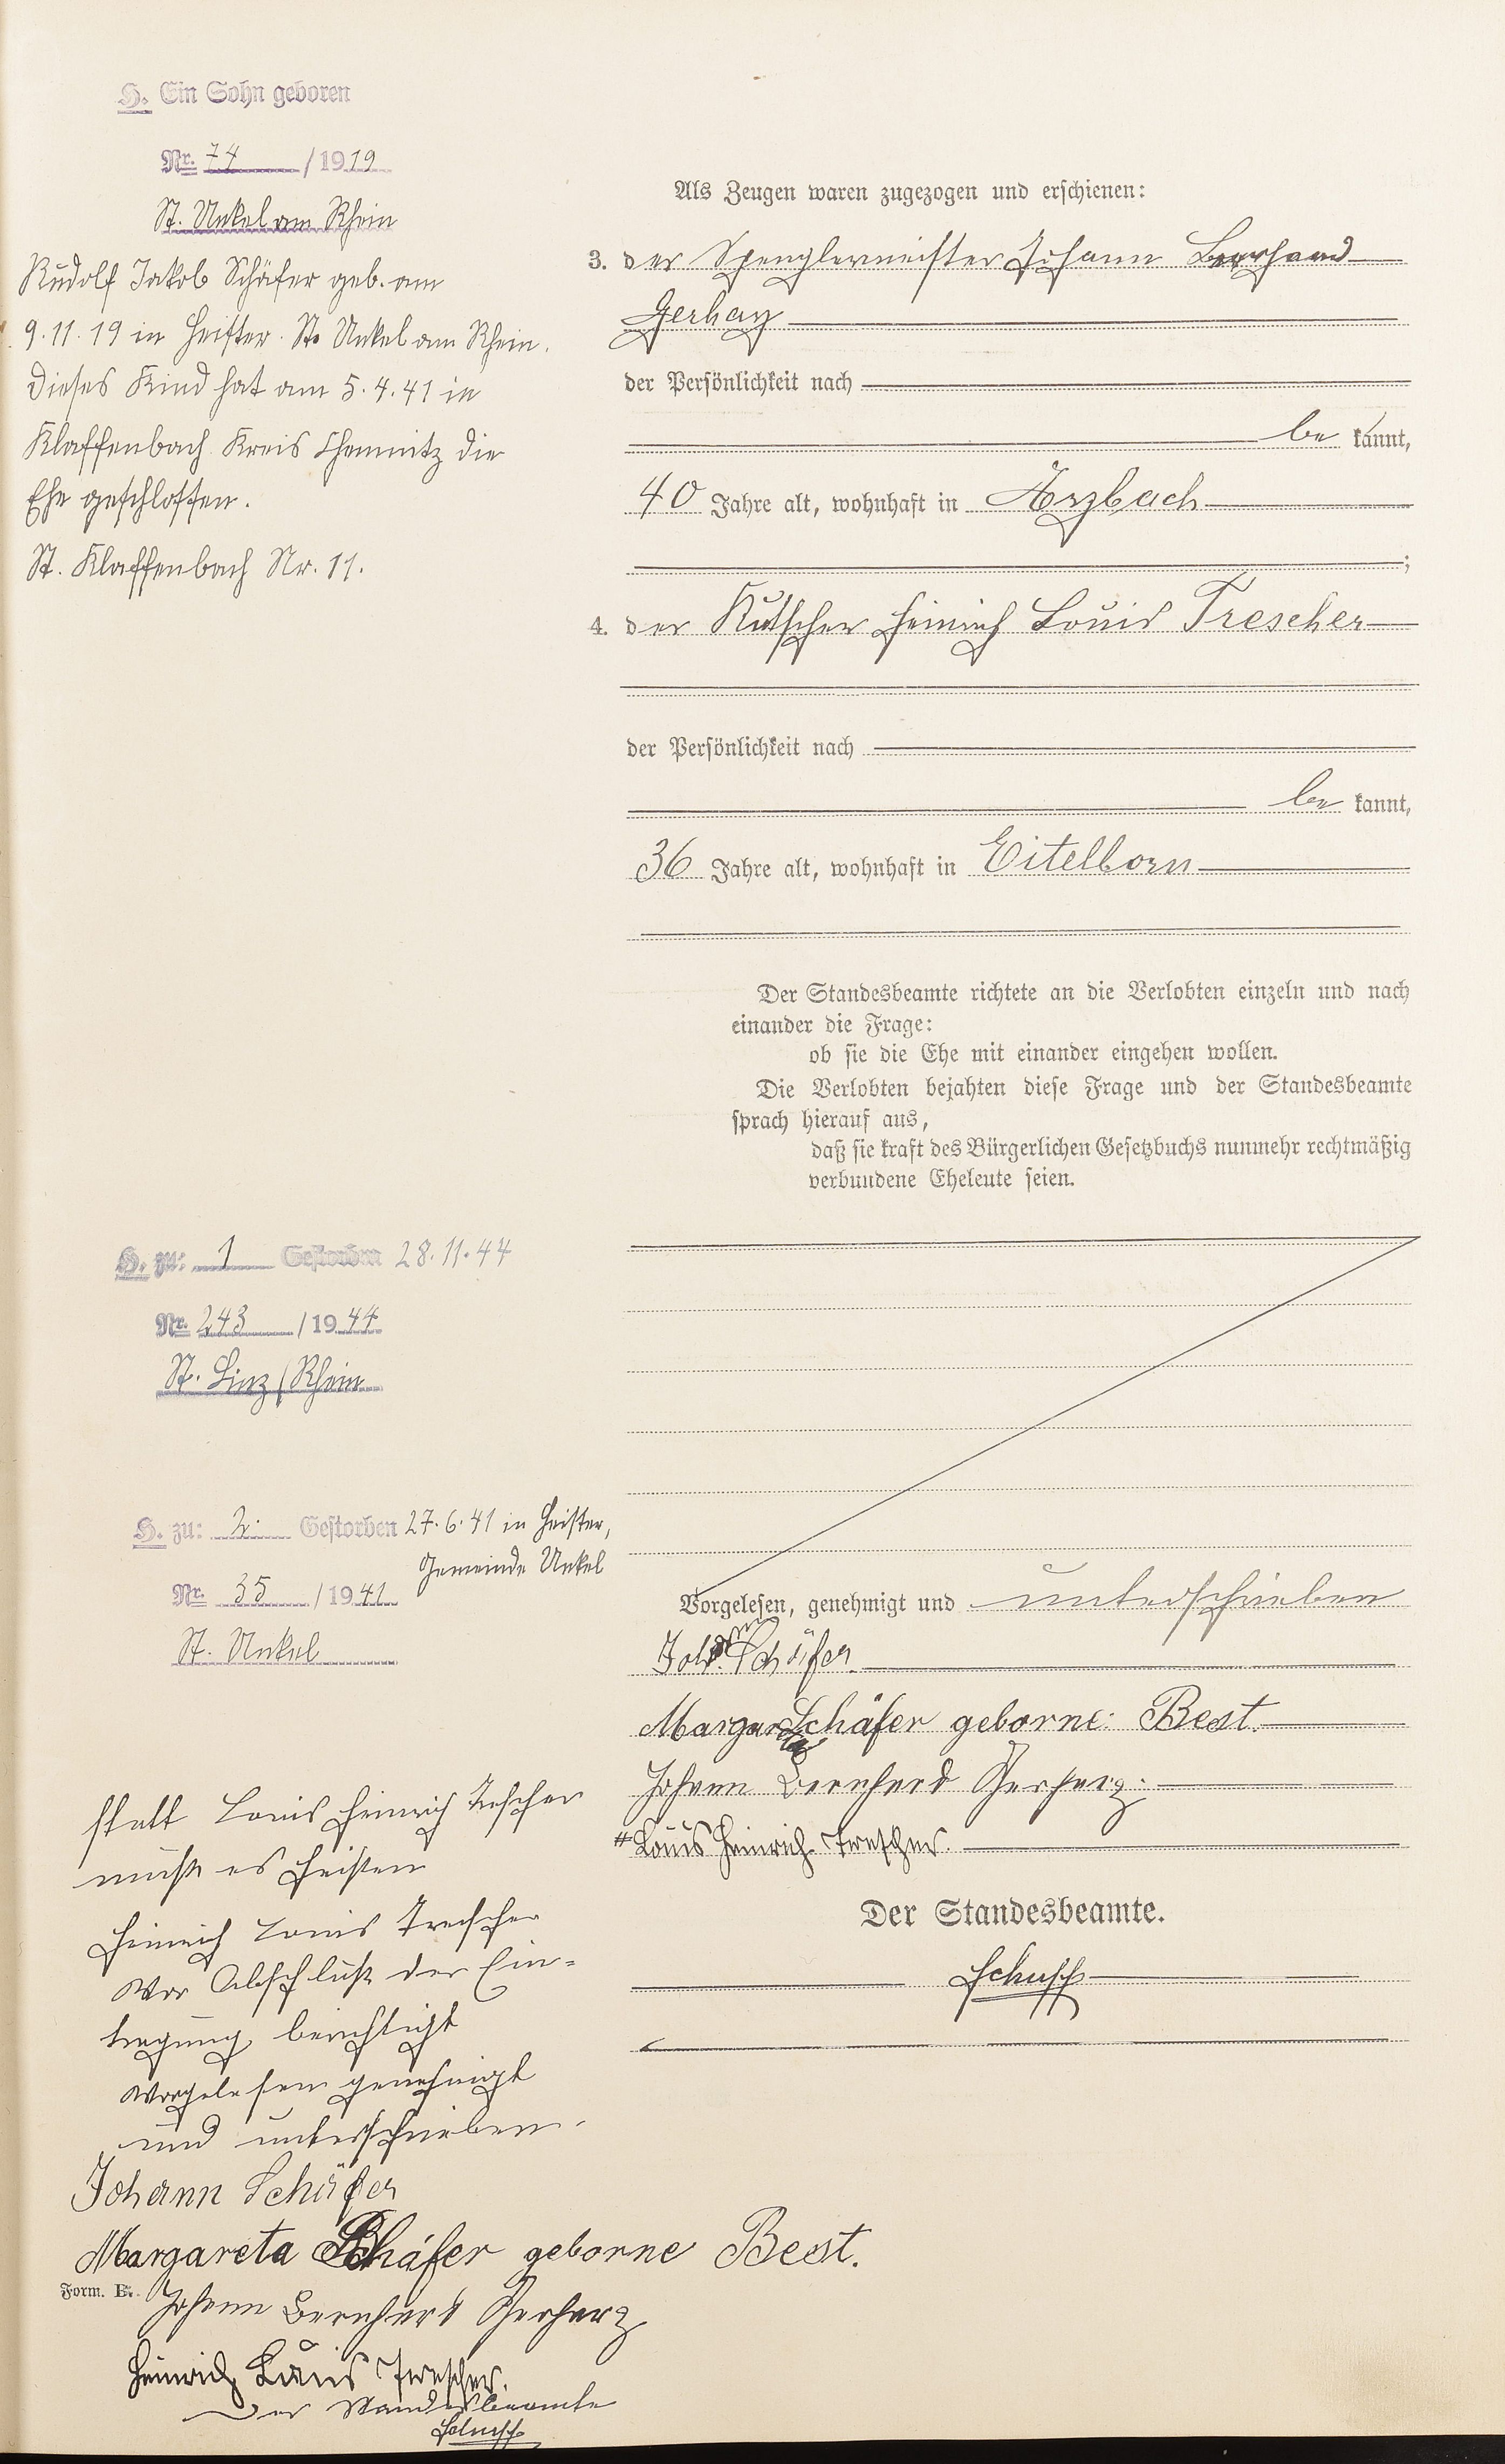 H. Ein Sohn geboren
Nr. 74 / 1919
St. Unkel am Rhein
Rudolf Jakob Schäfer geb. am
9.11.19 in Heister. St. Unkel am Rhein.
Dieses Kind hat am 5.4.41 in
Klaffenbach Kreis Chemnitz die
Ehe geschlossen.
St. Klaffenbach Nr. 11.
Als Zeugen waren zugezogen und erschienen:
3. der Spenglermeister Johann Bernhard
Gerharz
der Persönlichkeit nach
be kannt,
40 Jahre alt, wohnhaft in Arzbach
;
4. der Kutscher Heinrich Louis Trescher
der Persönlichkeit nach
be kannt,
36 Jahre alt, wohnhaft in Eitelborn
Der Standesbeamte richtete an die Verlobten einzeln und nach
einander die Frage:
ob sie die Ehe mit einander eingehen wollen.
Die Verlobten bejahten diese Frage und der Standesbeamte
sprach hierauf aus,
daß sie kraft des Bürgerlichen Gesetzbuchs nunmehr rechtmäßig
verbundene Eheleute seien.
H. zu: 1 Gestorben 28.11.44
Nr. 243 / 1944
St. Linz/Rhein
H. zu: 2. Gestorben 27.6.41 in Heister,
Gemeinde Unkel
Nr. 35 / 1941
St. Unkel
Vorgelesen, genehmigt und unterschrieben
Schäfer
Margareta Schäfer geborne: Best.
Johann Bernhard Gerharz.
# Louis Heinrich Trescher.
Der Standesbeamte.
statt Louis Heinrich Trescher
muß es heißen
Heinrich Louis Trescher
Vor Abschluß der Ein-
tragung berichtigt
Vorgelesen genehmigt
und unterschrieben.
Johann Schäfer
Margareta Schäfer geborne Best.
Form. B.
Johann Bernhard Gerharz
Heinrich Louis Trescher.
Der Standesbeamte